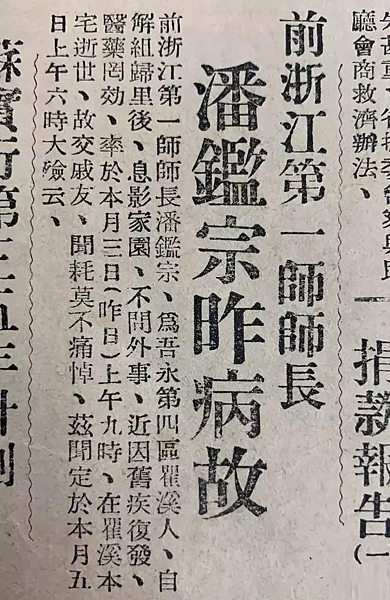 廳會商救濟辦法、
捐款報告(一
前浙江第一師師長
潘鑑宗昨病故
前浙江第一師師長潘鑑宗、爲吾永第四區瞿溪人、自
解組歸里後、息影家園、不問外事、近因舊疾復發、
醫藥罔効、率於本月三日(昨日)上午九時、在瞿溪本
宅逝世、故交戚友、聞耗莫不痛悼、茲聞定於本月五
日上午六時大殮云、
蘇實行第三五年計劃